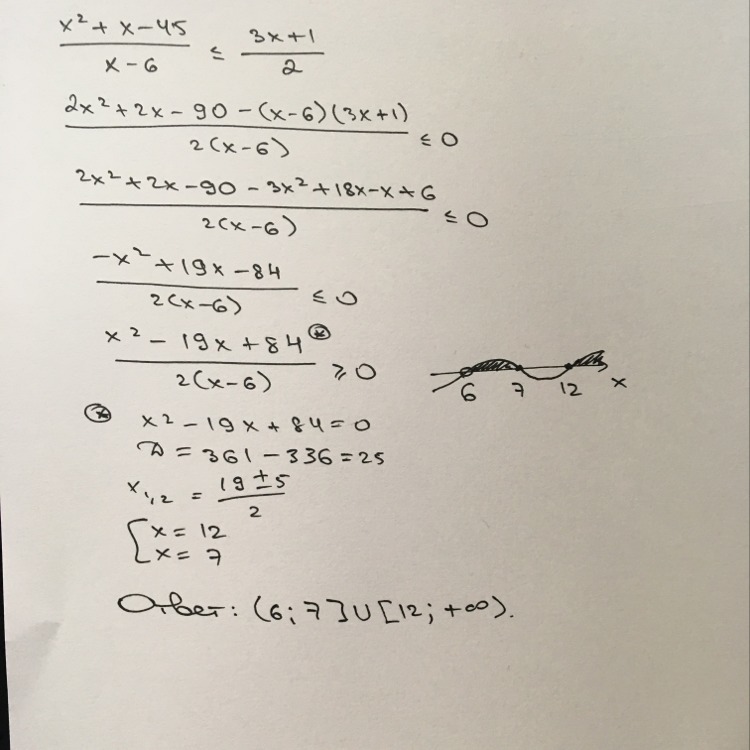 x² + x - 45 / x - 6 ≤ 3x+1 / 2
2x² + 2x - 90 - (x-6)(3x+1) / 2(x-6) ≤ 0
2x² + 2x - 90 - 3x² + 18x - x + 6 / 2(x-6) ≤ 0
-x² + 19x - 84 / 2(x-6) ≤ 0
x² - 19x + 84 ⊛ / 2(x-6) ≥ 0
6 7 12 x
⊛ x² - 19x + 84 = 0
D = 361 - 336 = 25
x₁,₂ = 19 ± 5 / 2
[ x = 12
x = 7
Ответ: (6; 7] ∪ [12; +∞).